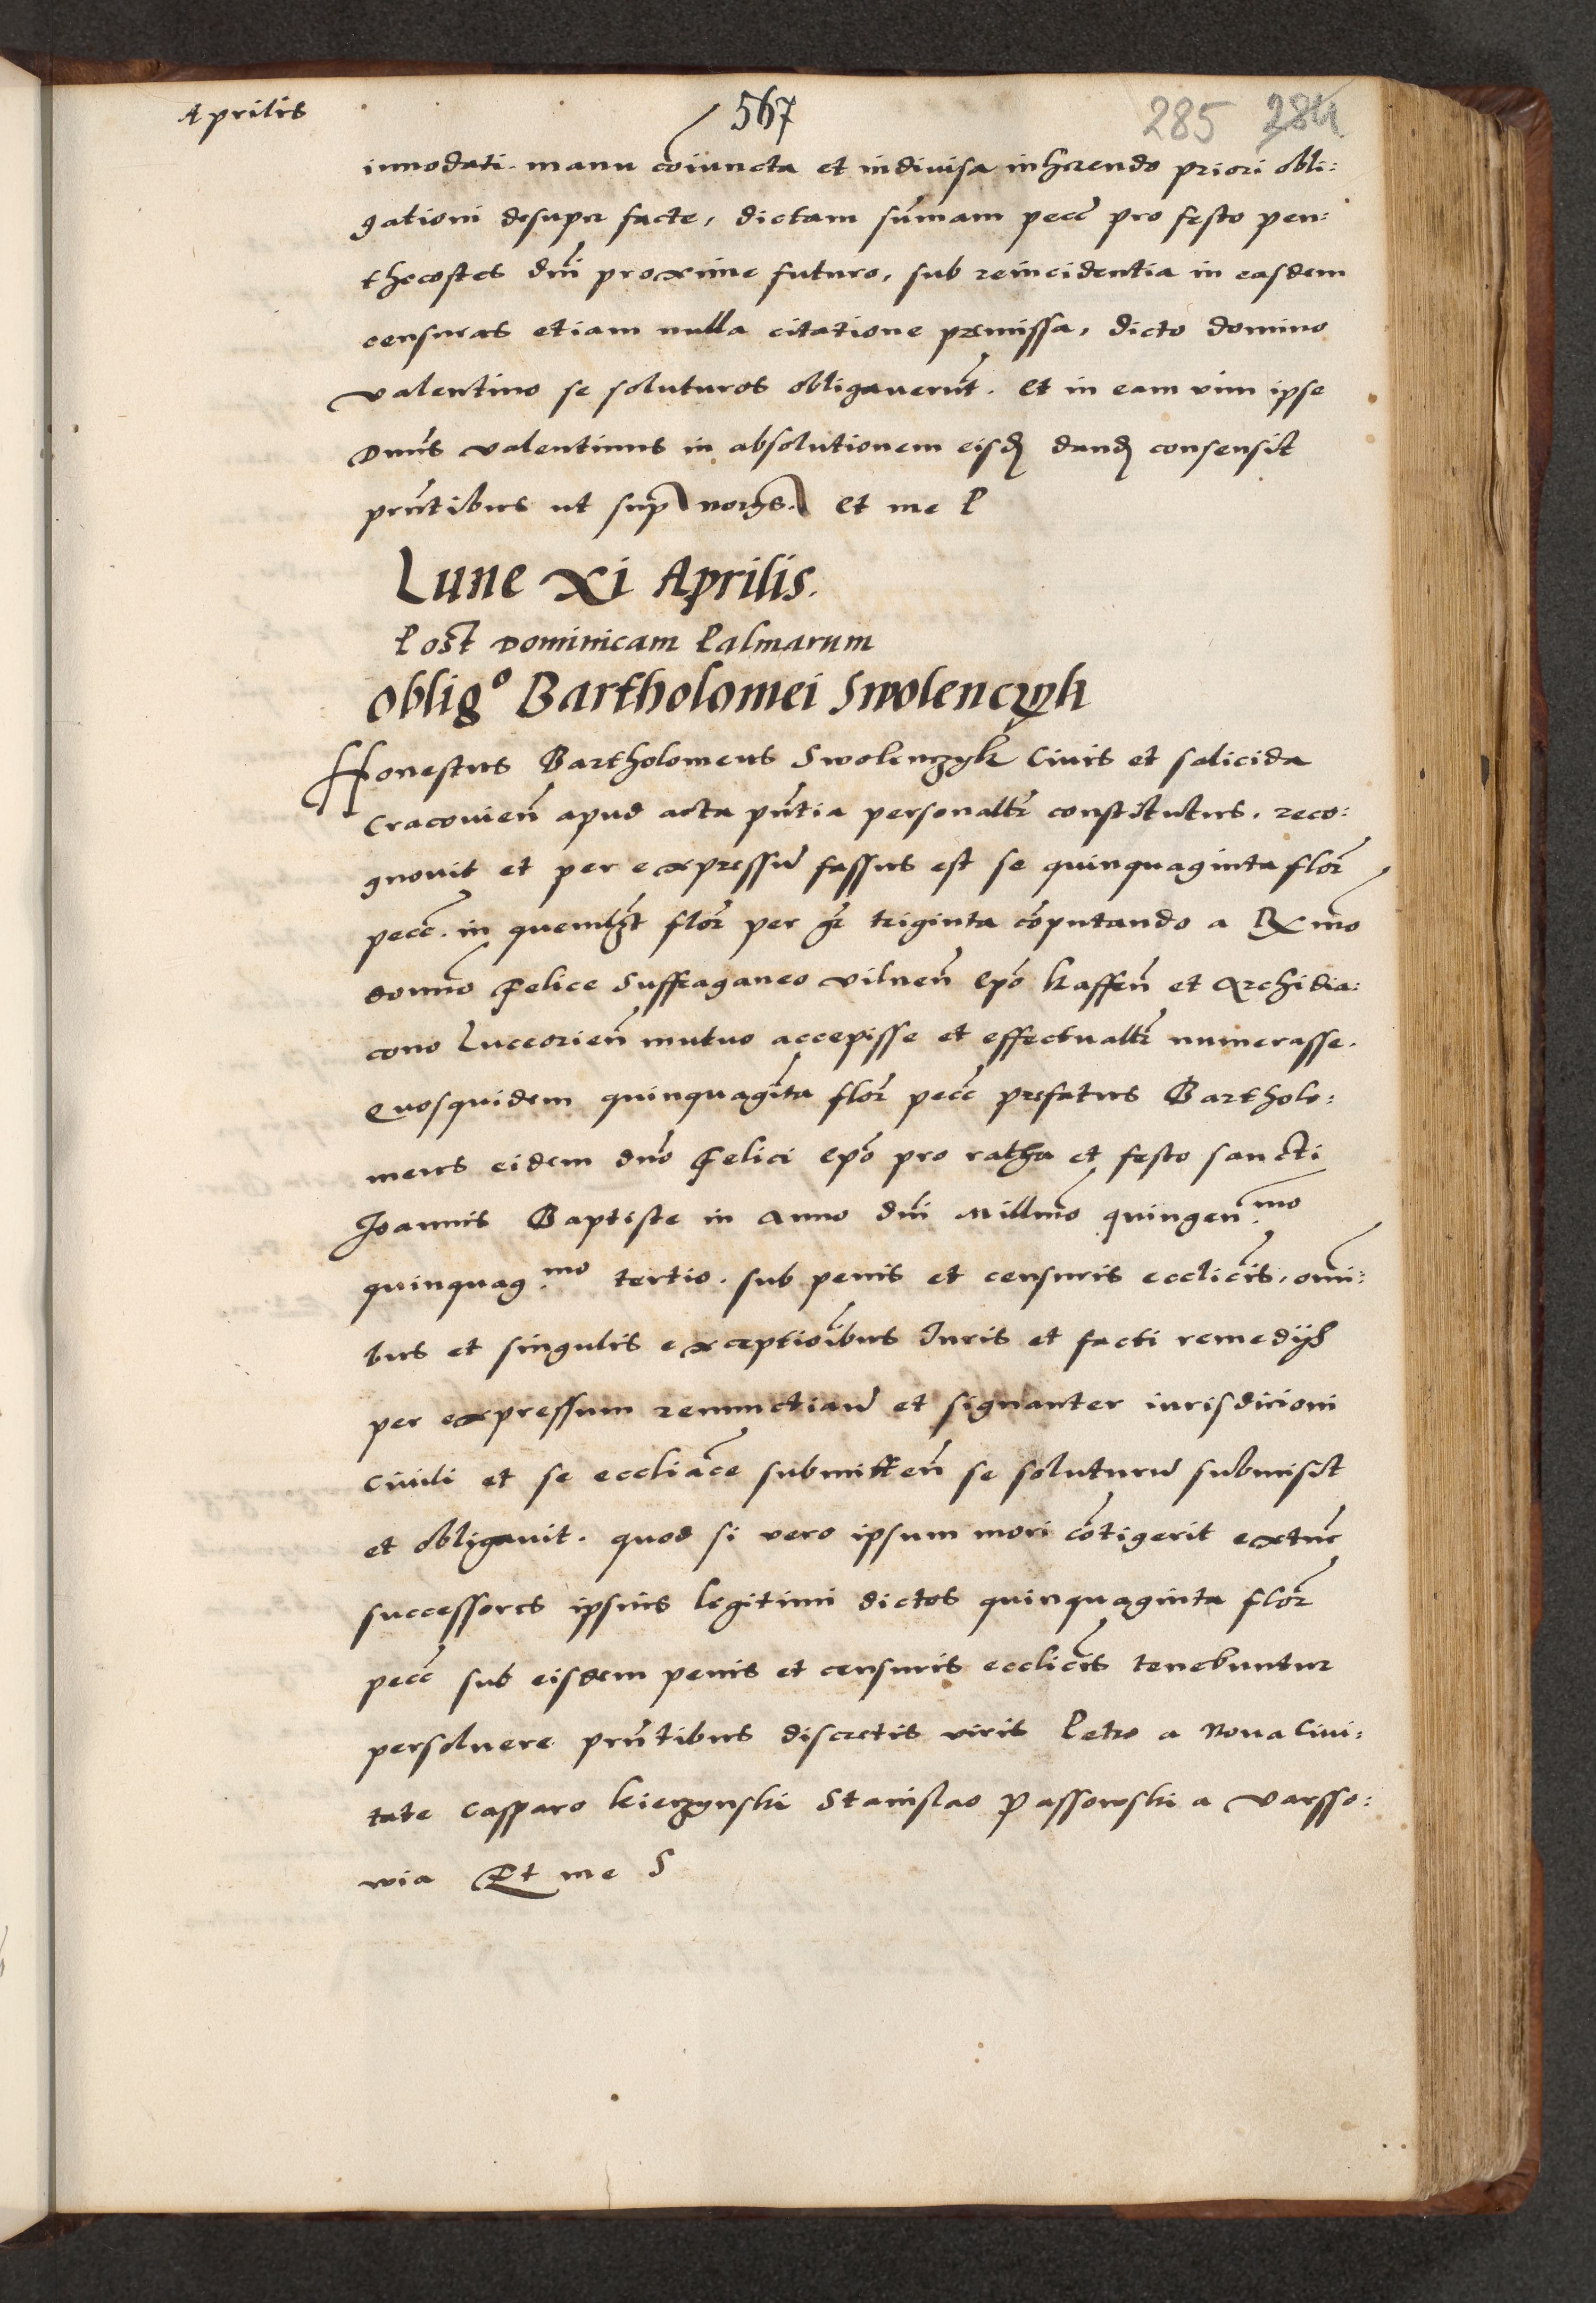 Aprilis
567
285 284
innodati. manu coiuncta et indiuisa inherendo priori obli:
gationi desuper facte, dictam sum̄am pecc̄ pro festo pen:
thecostes dn̄i proxime futuro, sub reincidentia in easdem
censuras etiam nulla citatione premissa, dicto domino
valentino se soluturos obligauerūt. et in eam vim ipse
Dnūs valentinus in absolutionem eisd dand consensit
prn̄tibus ut sup et me P
Lune xi Aprilis.
Post Dominicam Palmarum
Obligº Bartholomei Swolenczyk
Honestus Bartholomeus Swolenczyk Ciuis et salicida
Cracouien̄ apud acta pn̄tia personaltr̄ constitutus. reco:
gnouit et per expressū fassus est se quinquaginta flor̄
pecc̄. in quemlꝫt flor̄ per gr̄ triginta cōputando a Rx̄mo
domn̄o Felice Suffraganeo vilnen̄ Ep̄o kaffen̄ et Archidia:
cono Luceorien̄ mutuo accepisse et effectualtr̄ numerasse.
Quosquidem quinquagīta flor̄ pecc̄ prefatus Bartholo:
meus eidem dn̄o Felici Ep̄o pro ratha et festo sancti
Joannis Baptiste in Anno dn̄i Millm̄o quingen.mo
quinquag.mo tertio. sub penis et censuris ecclic̄is. omī:
bus et singulis exceptioībus Iuris et facti remedijs
per expressum renunctiand et signanter iurisdicioni
Ciuili et se eccliāce submitten̄ se soluturū submisit
et obligauit. quod si vero ipsum mori cōtigerit extūc
successores ipsius legitimi dictos quinquaginta flor̄
pecc̄ sub eisdem penis et censuris ecclic̄is tenebuntur
persoluere prn̄tibus discretis viris Petro a Noua Ciui:
tate Casparo kierzynski Stanislao Passowski a Varsso:
wia Et me S